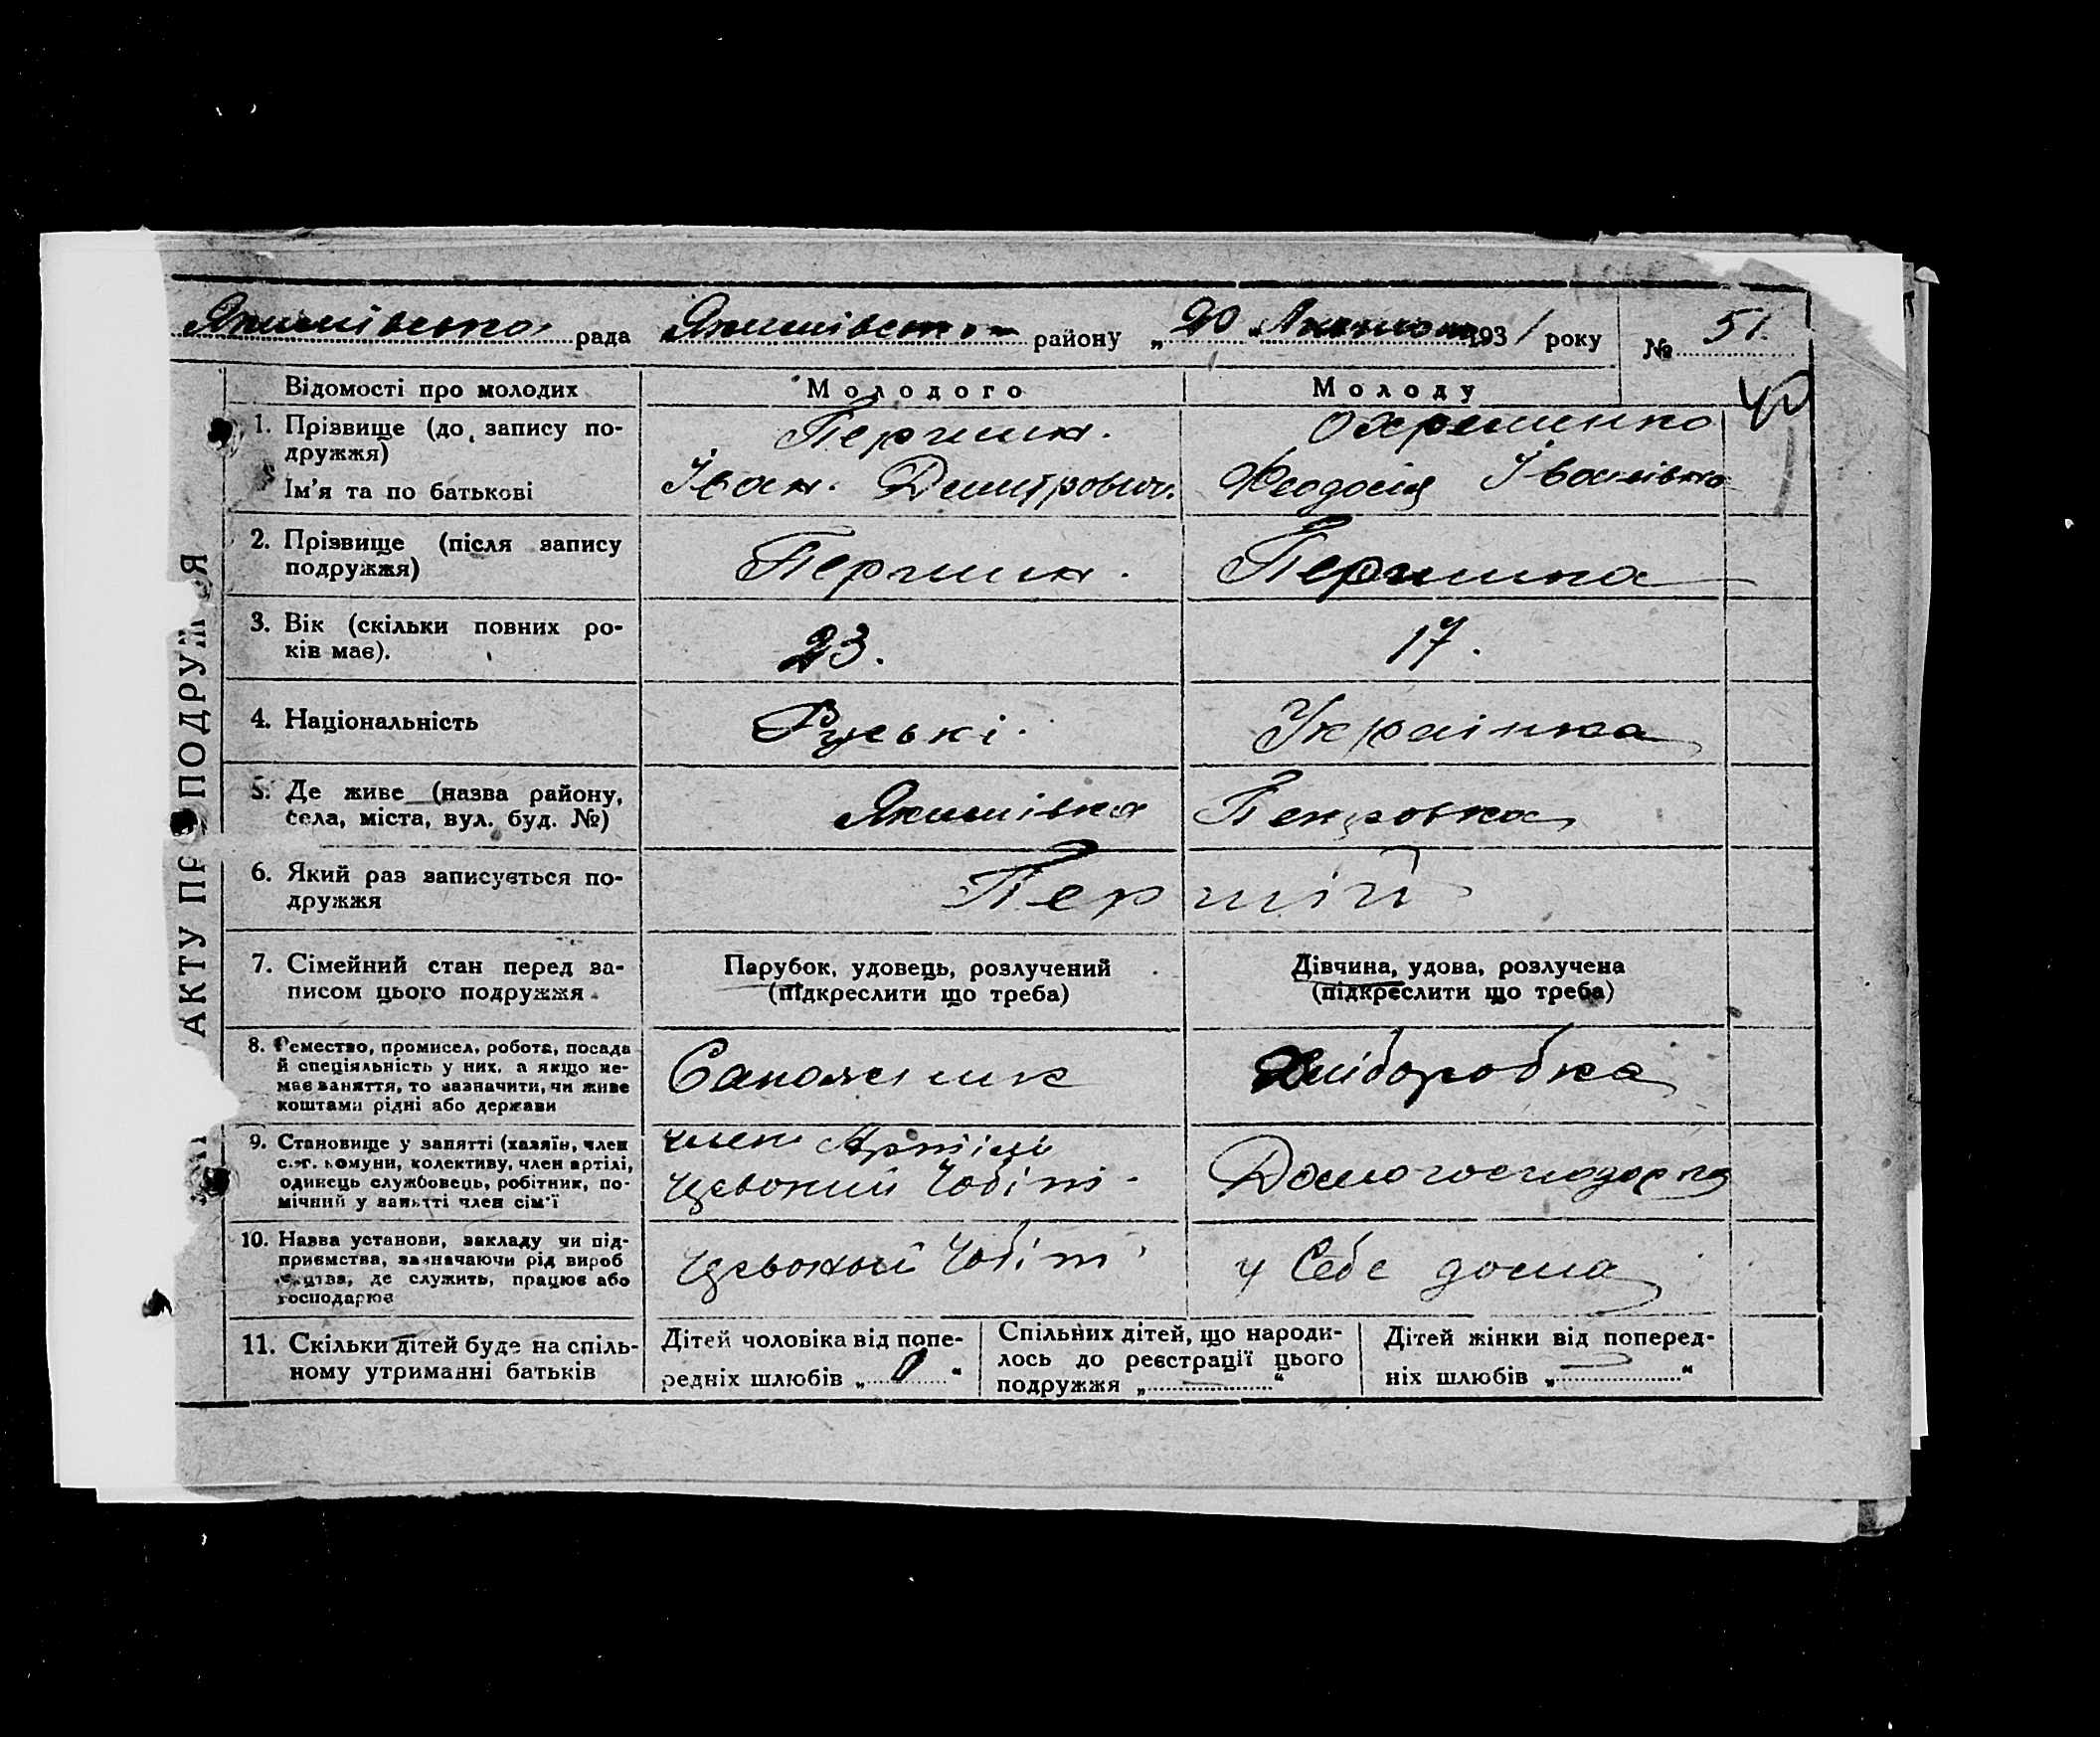 Якимівська рада Якимівського району „20 193 1 року № 51.
Відомості про молодих Молодого Молоду
1. Прізвище (до запису по- Першин. Охрименко
дружжя)
Ім'я та по батькові Іван. Дмитрович. Феодосія Іванівна
2. Прізвище (після запису Першин. Першина
подружжя)
3. Вік (скільки повних ро- 23. 17.
ків має).
4. Національність Руські. Українка
5. Де живе (назва району, Якимівка Петровка
села, міста, вул. буд. №)
6. Який раз записується по- Першій
дружжя
7. Сімейний стан перед за- Парубок, удовець, розлучений Дівчина, удова, розлучена
писом цього подружжя. (підкреслити що треба) (підкреслити що треба)
8. Ремество, промисел, робота, посада Сапожник Хліборобка
й спеціяльність у них, а якщо не-
має заняття, то зазначити, чи живе
коштами рідні або держави
9. Становище у занятті (хазяїн, член член Артілі Домогосподарка
с.-г. комуни, колективу, член артілі, Чобіт.
одинець службовець, робітник, по-
мічний у занятті член сім'ї
10. Назва установи, закладу чи під- Чобіт у Себе дома
приємства, зазначаючи рід вироб
де служить, працює або
господарює
11. Скільки дітей буде на спіль- Дітей чоловіка від попе- Спільних дітей, що народи- Дітей жінки від поперед-
ному утриманні батьків редніх шлюбів „ 0 “ лось до реєстрації цього ніх шлюбів „ — “
подружжя „ — “
АКТУ ПР ПОДРУЖ Я